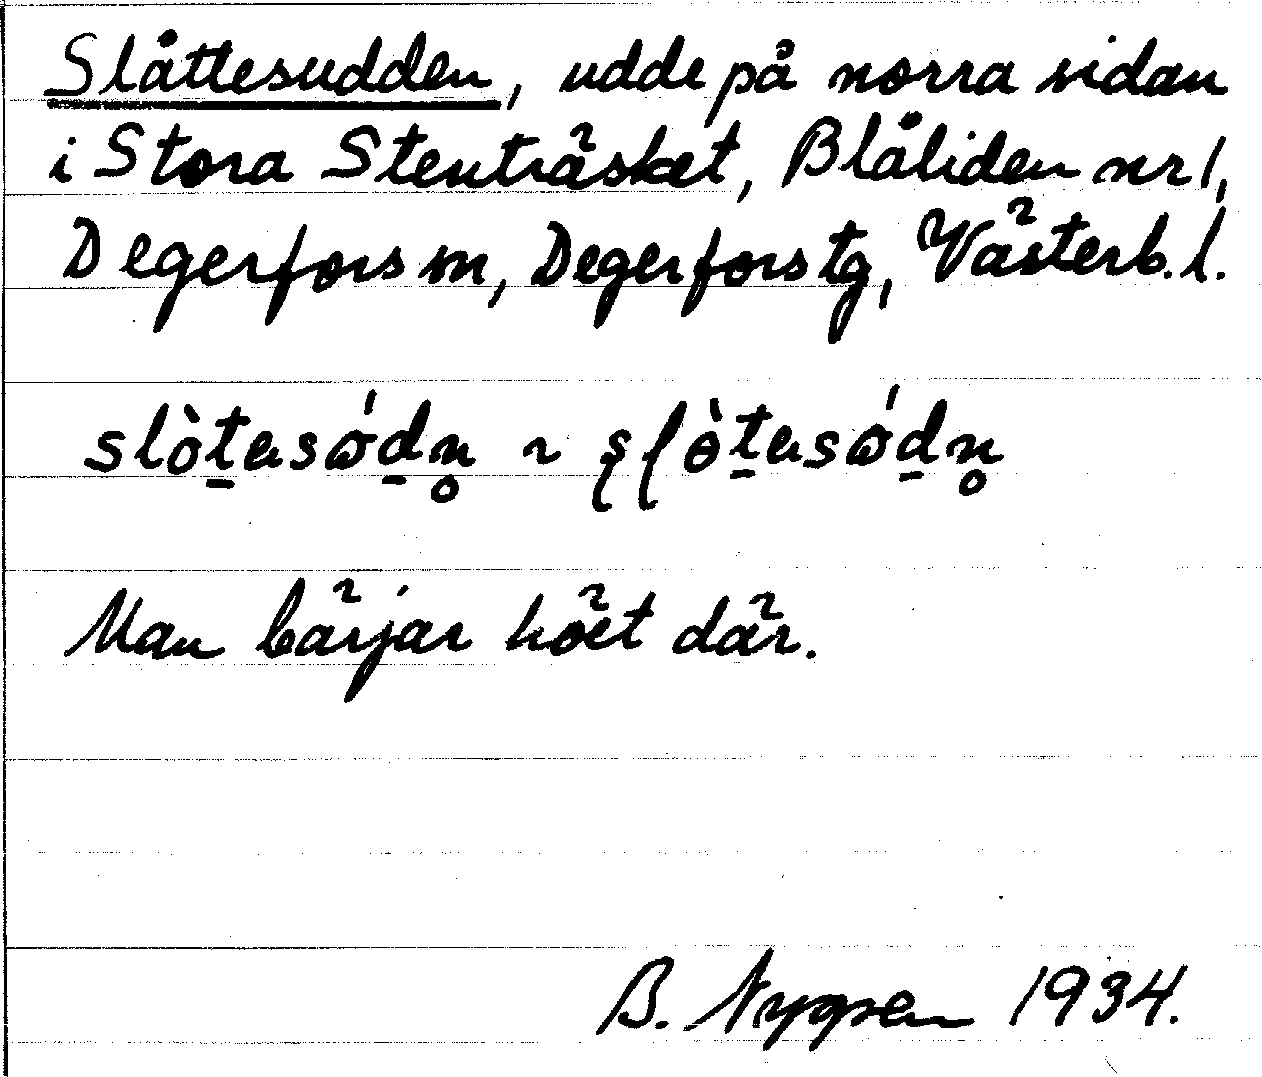 Slåttesudden, udde på norra sidan
i Stora Stenträsket, Blåliden nr 1,
Degerfors sn, Degerfors tg, Västerb. l.
slòt̠esǿd̠n̥ ~ ʂɭòt̠esǿd̠n̥
Man bärjar höet där.
B. 1934.